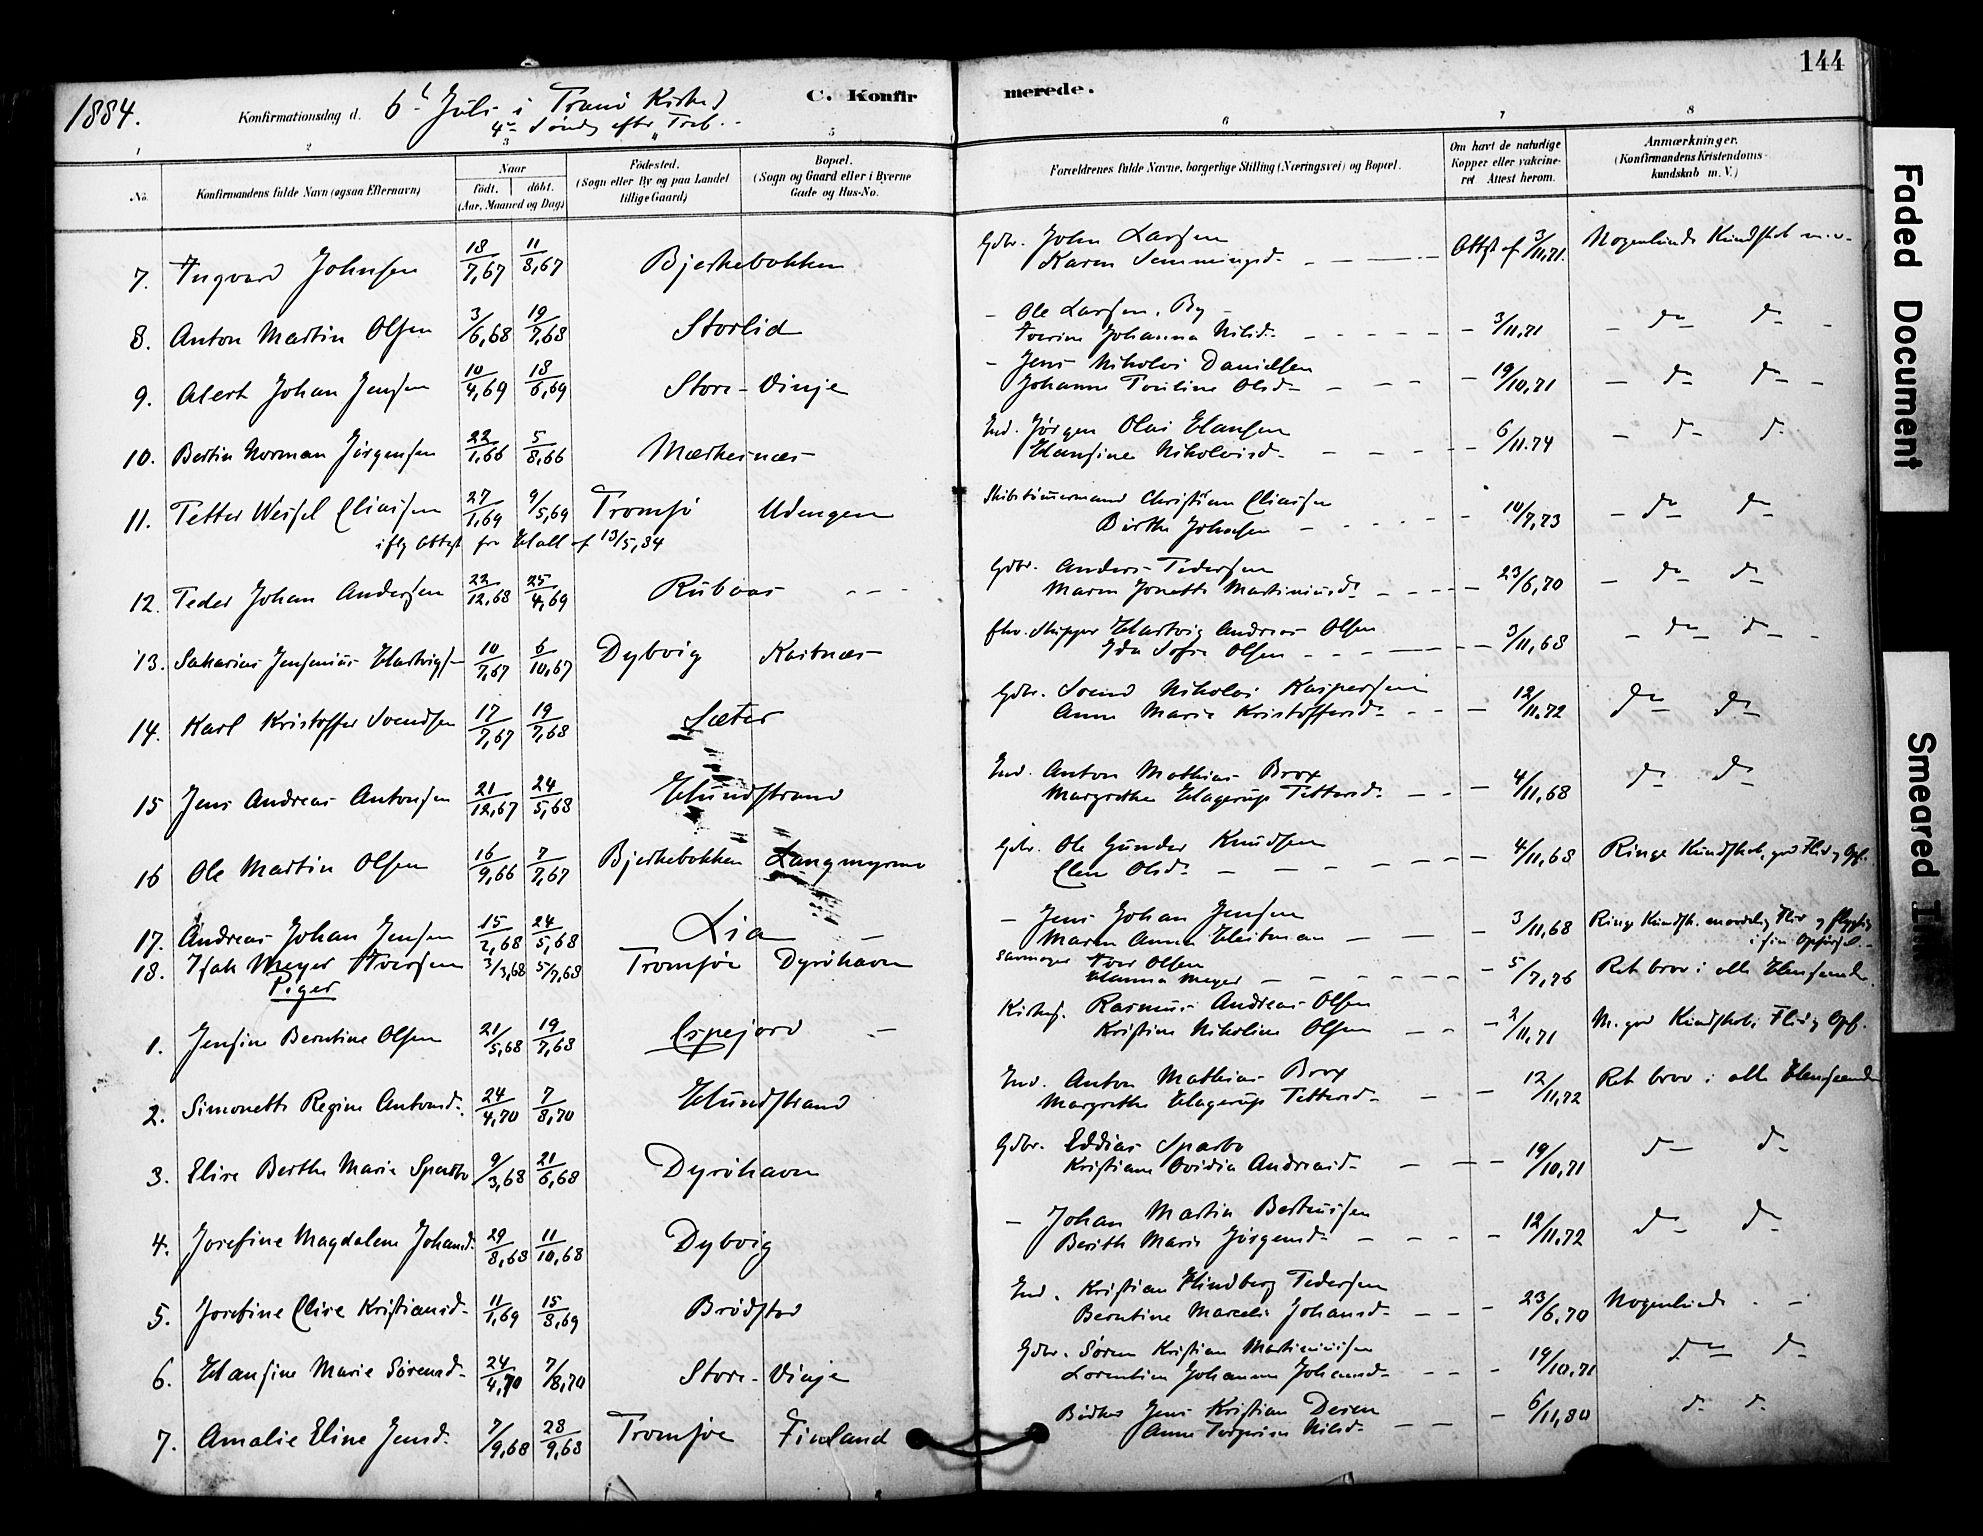 144
1884.
Konfirmationsdag d. 6t Juli i Tranö Kirke
4de Sönd. efter Tref.
C. Konfirmerede.
1 2 3 5 6 7 8
No. Konfirmandens fulde Navn (ogsaa Efternavn) Naar födt. döbt. (Aar, Maaned og Dag) Födested. (Sogn eller By og paa Landet tillige Gaard) Bopæl. (Sogn og Gaard eller i Byerne Gade og Hus-No. Forældrenes fulde Navne, borgerlige Stilling (Næringsvei) og Bopæl. Om havt de naturlige Kopper eller vakcineret Attest herom. Anmærkninger. (Konfirmandens Kristendomskundskab m. V.)
7. Ingvard Johnsen 18/7,67 11/8,67 Bjerkebakken Gdbr. John Larsen Attest af 3/11,71 Nogenlunde Kundskab m.v.
Karen Semmingsd.
8. Anton Martin Olsen 3/6,68 19/7,68 Storlid - Ole Larsen, By 3/11,71 do do
Iverine Johanna Nilsd.
9. Alert Johan Jensen 10/4,69 18/6,69 Store-Vinje - Jens Nikolai Danielsen 19/10,71 do do
Johanna Pauline Olsd.
10. Bertin Norman Jörgensen 22/1,66 5/8,66 Mærkesnæs Ind. Jörgen Olai Hansen 6/11.74 do do
Hansine Nikolaisd.
11. Petter Weisel Eliassen 27/1,69 9/5,69 Tromsö Udengen Skibstömmermand Christian Eliassen 10/7,73 do do
iflg Attest fra Hall af 13/5,84 Berthe Johnsen
12. Peder Johan Andersen 22/12,68 25/4,69 Rubaas Gdbr. Anders Pedersen 23/6,70 do do
Maren Jonette Martiniusd.
13. Sakarias Jensenius Hartvigs. 10/7,67 6/10,67 Dybvig Kastnæs fhv. Skipper Hartvig Andreas Olsen 3/11,68 do do
Ida Sofie Olsen
14. Karl Kristoffer Svendsen 17/7,67 19/7,68 Sæter Gdbr. Svend Nikolai Kaspersen 12/11.72 do do
Anne Marie Kristoffersd.
15 Jens Andreas Antonsen 21/12,67 24/5,68 Hundstrand Ind. Anton Mathias Brox 4/11,68 do do
Margrethe Hagerup Pettersd.
16 Ole Martin Olsen 16/9,66 7/7,67 Bjerkebakken Langmyrmo Gdbr. Ole Gunder Knudsen 4/11,68 Ringe Kundskab, god Flid og Opf.
Elen Olsd.
17. Andreas Johan Jensen 15/2,68 24/5,68 Lia - Jens Johan Jensen 3/11,68 Ringe Kundsk. maadelig Flid og
Maren Anna Heitman i sin Opförsel.
18. Isak Meyer Iversen 3/3,68 5/7,68 Tromsöe Dyröhavn Iver Olsen 5/7,76 Ret brav i alle Henseender
Hanna Meyer
Piger
1. Jensine Berntine Olsen 21/5,68 19/7,68 Espejord Kirkes. Rasmus Andreas Olsen 2/11,71 M. god Kundskab; Flid og Opf.
Kristine Nikoline Olsen
2. Simonette Regine Antonsd. 24/4,70 7/8,70 Hundstrand Ind. Anton Mathias Brox 12/11,72 Ret brav i alle Henseender
Margrethe Hagerup Pettersd.
3. Elise Berthe Marie Sparbo 9/3,68 21/6,68 Dyröhavn Gdbr. Eddias Sparbo 19/10,71 do do
Kristiane Ovidia Andreasd.
4. Josefine Magdalene Johansd. 29/8,68 11/10,68 Dybvig - Johan Martin Berteussen 12/11,72 do do
Berith Marie Jörgensd.
5. Josefine Elise Kristiansd. 11/1,69 15/8,69 Brödstad Ind. Kristian Hindberg Pedersen 23/6,70 Nogenlunde
Berntine Marcelie Johansd.
6. Hansine Marie Sörensd. 24/4,70 7/8,70 Store-Vinje Gdbr. Sören Kristian Martinussen 19/10,71 do do
Lorentine Johanna Johansd.
7. Amalie Eline Jensd. 7/9,68 28/9,68 Tromsöe Finland Bödker Jens Kristian Deren 6/11,80 do do
Anne Nilsd.
Faded Document
Smeared Ink